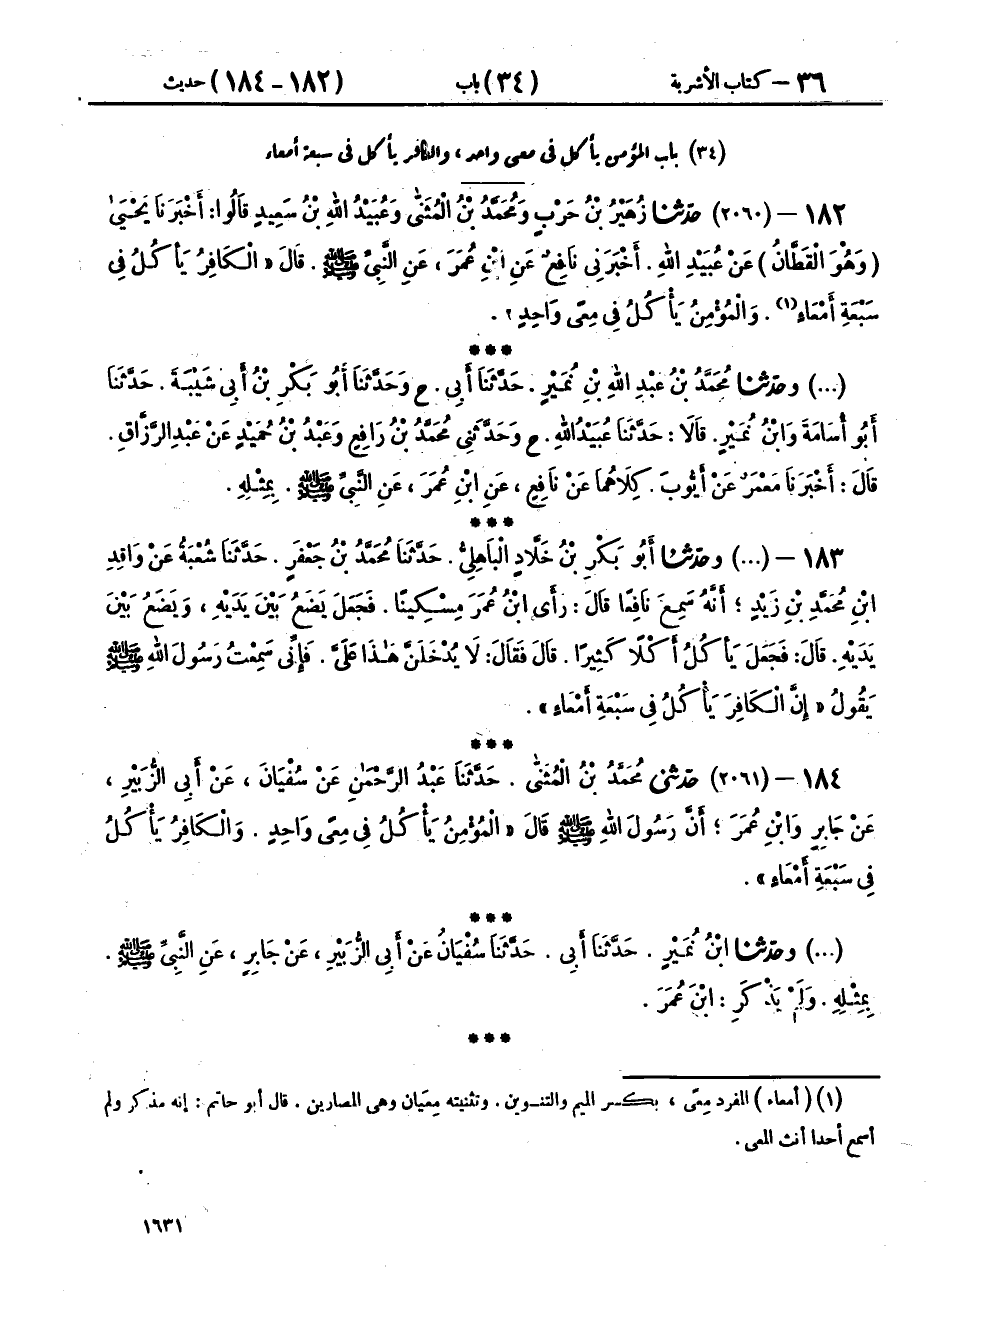 ٣٦ – كتاب الأشربة (٣٤) باب (١٨٢ – ١٨٤) حديث
(٣٤) باب المؤمن يأكل فى معى واحد ، والكافر يأكل فى سبعة أمعاء
١٨٢ – (٢٠٦٠) حدثنا زُهَيْرُ بْنُ حَرْبٍ وَمُحَمَّدُ بْنُ الْمُثَنَّىٰ وَعُبَيْدُ اللهِ بْنُ سَعِيدٍ قَالُوا: أَخْبَرَنَا يَحْيَىٰ
( وَهُوَ الْقَطَّانُ ) عَنْ عُبَيْدِ اللهِ . أَخْبَرَنِى نَافِعٌ عَنِ ابْنِ عُمَرَ ، عَنِ النَّبِىِّ ﷺ . قَالَ « الْكَافِرُ يَأْكُلُ فِى
سَبْعَةِ أَمْعَاءٍ(١) . وَالْمُؤْمِنُ يَأْكُلُ فِى مِعًى وَاحِدٍ » .
***
(...) وحدثنا مُحَمَّدُ بْنُ عَبْدِ اللهِ بْنِ نُمَيْرٍ . حَدَّثَنَا أَبِى . ح وَحَدَّثَنَا أَبُو بَكْرِ بْنُ أَبِى شَيْبَةَ . حَدَّثَنَا
أَبُو أُسَامَةَ وَابْنُ نُمَيْرٍ. قَالَا : حَدَّثَنَا عُبَيْدُاللهِ . ح وَحَدَّثَنِى مُحَمَّدُ بْنُ رَافِعٍ وَعَبْدُ بْنُ حُمَيْدٍ عَنْ عَبْدِالرَّزَّاقِ .
قَالَ : أَخْبَرَنَا مَعْمَرٌ عَنْ أَيُّوبَ . كِلَاهُمَا عَنْ نَافِعٍ ، عَنِ ابْنِ عُمَرَ ، عَنِ النَّبِىِّ ﷺ . بِمِثْلِهِ .
***
١٨٣ – (...) وحدثنا أَبُو بَكْرِ بْنُ خَلَّادٍ الْبَاهِلِىُّ . حَدَّثَنَا مُحَمَّدُ بْنُ جَعْفَرٍ . حَدَّثَنَا شُعْبَةُ عَنْ وَاقِدِ
ابْنِ مُحَمَّدِ بْنِ زَيْدٍ ؛ أَنَّهُ سَمِعَ نَافِعًا قَالَ : رَأَى ابْنُ عُمَرَ مِسْكِينًا . فَجَعَلَ يَضَعُ بَيْنَ يَدَيْهِ ، وَيَضَعُ بَيْنَ
يَدَيْهِ. قَالَ: فَجَعَلَ يَأْكُلُ أَكْلًا كَثِيرًا . قَالَ فَقَالَ: لَا يُدْخَلَنَّ هَٰذَا عَلَىَّ . فَإِنِّى سَمِعْتُ رَسُولَ اللهِ ﷺ
يَقُولُ « إِنَّ الْكَافِرَ يَأْكُلُ فِى سَبْعَةِ أَمْعَاءٍ » .
***
١٨٤ – (٢٠٦١) حدثنى مُحَمَّدُ بْنُ الْمُثَنَّىٰ . حَدَّثَنَا عَبْدُ الرَّحْمَٰنِ عَنْ سُفْيَانَ ، عَنْ أَبِى الزُّبَيْرِ ،
عَنْ جَابِرٍ وَابْنِ عُمَرَ ؛ أَنَّ رَسُولَ اللهِ ﷺ قَالَ « الْمُؤْمِنُ يَأْكُلُ فِى مِعًى وَاحِدٍ . وَالْكَافِرُ يَأْكُلُ
فِى سَبْعَةِ أَمْعَاءٍ » .
***
(...) وحدثنا ابْنُ نُمَيْرٍ . حَدَّثَنَا أَبِى . حَدَّثَنَا سُفْيَانُ عَنْ أَبِى الزُّبَيْرِ ، عَنْ جَابِرٍ ، عَنِ النَّبِىِّ ﷺ .
بِمِثْلِهِ . وَلَمْ يَذْكُرِ : ابْنَ عُمَرَ .
***
(١) ( أمعاء ) المفرد مِعًى ، بكسر الميم والتنوين . وتثنيته مِعَيان وهى المصارين . قال أبو حاتم : إنه مذكر ولم
أسمع أحدا أنث المعى .
١٦٣١